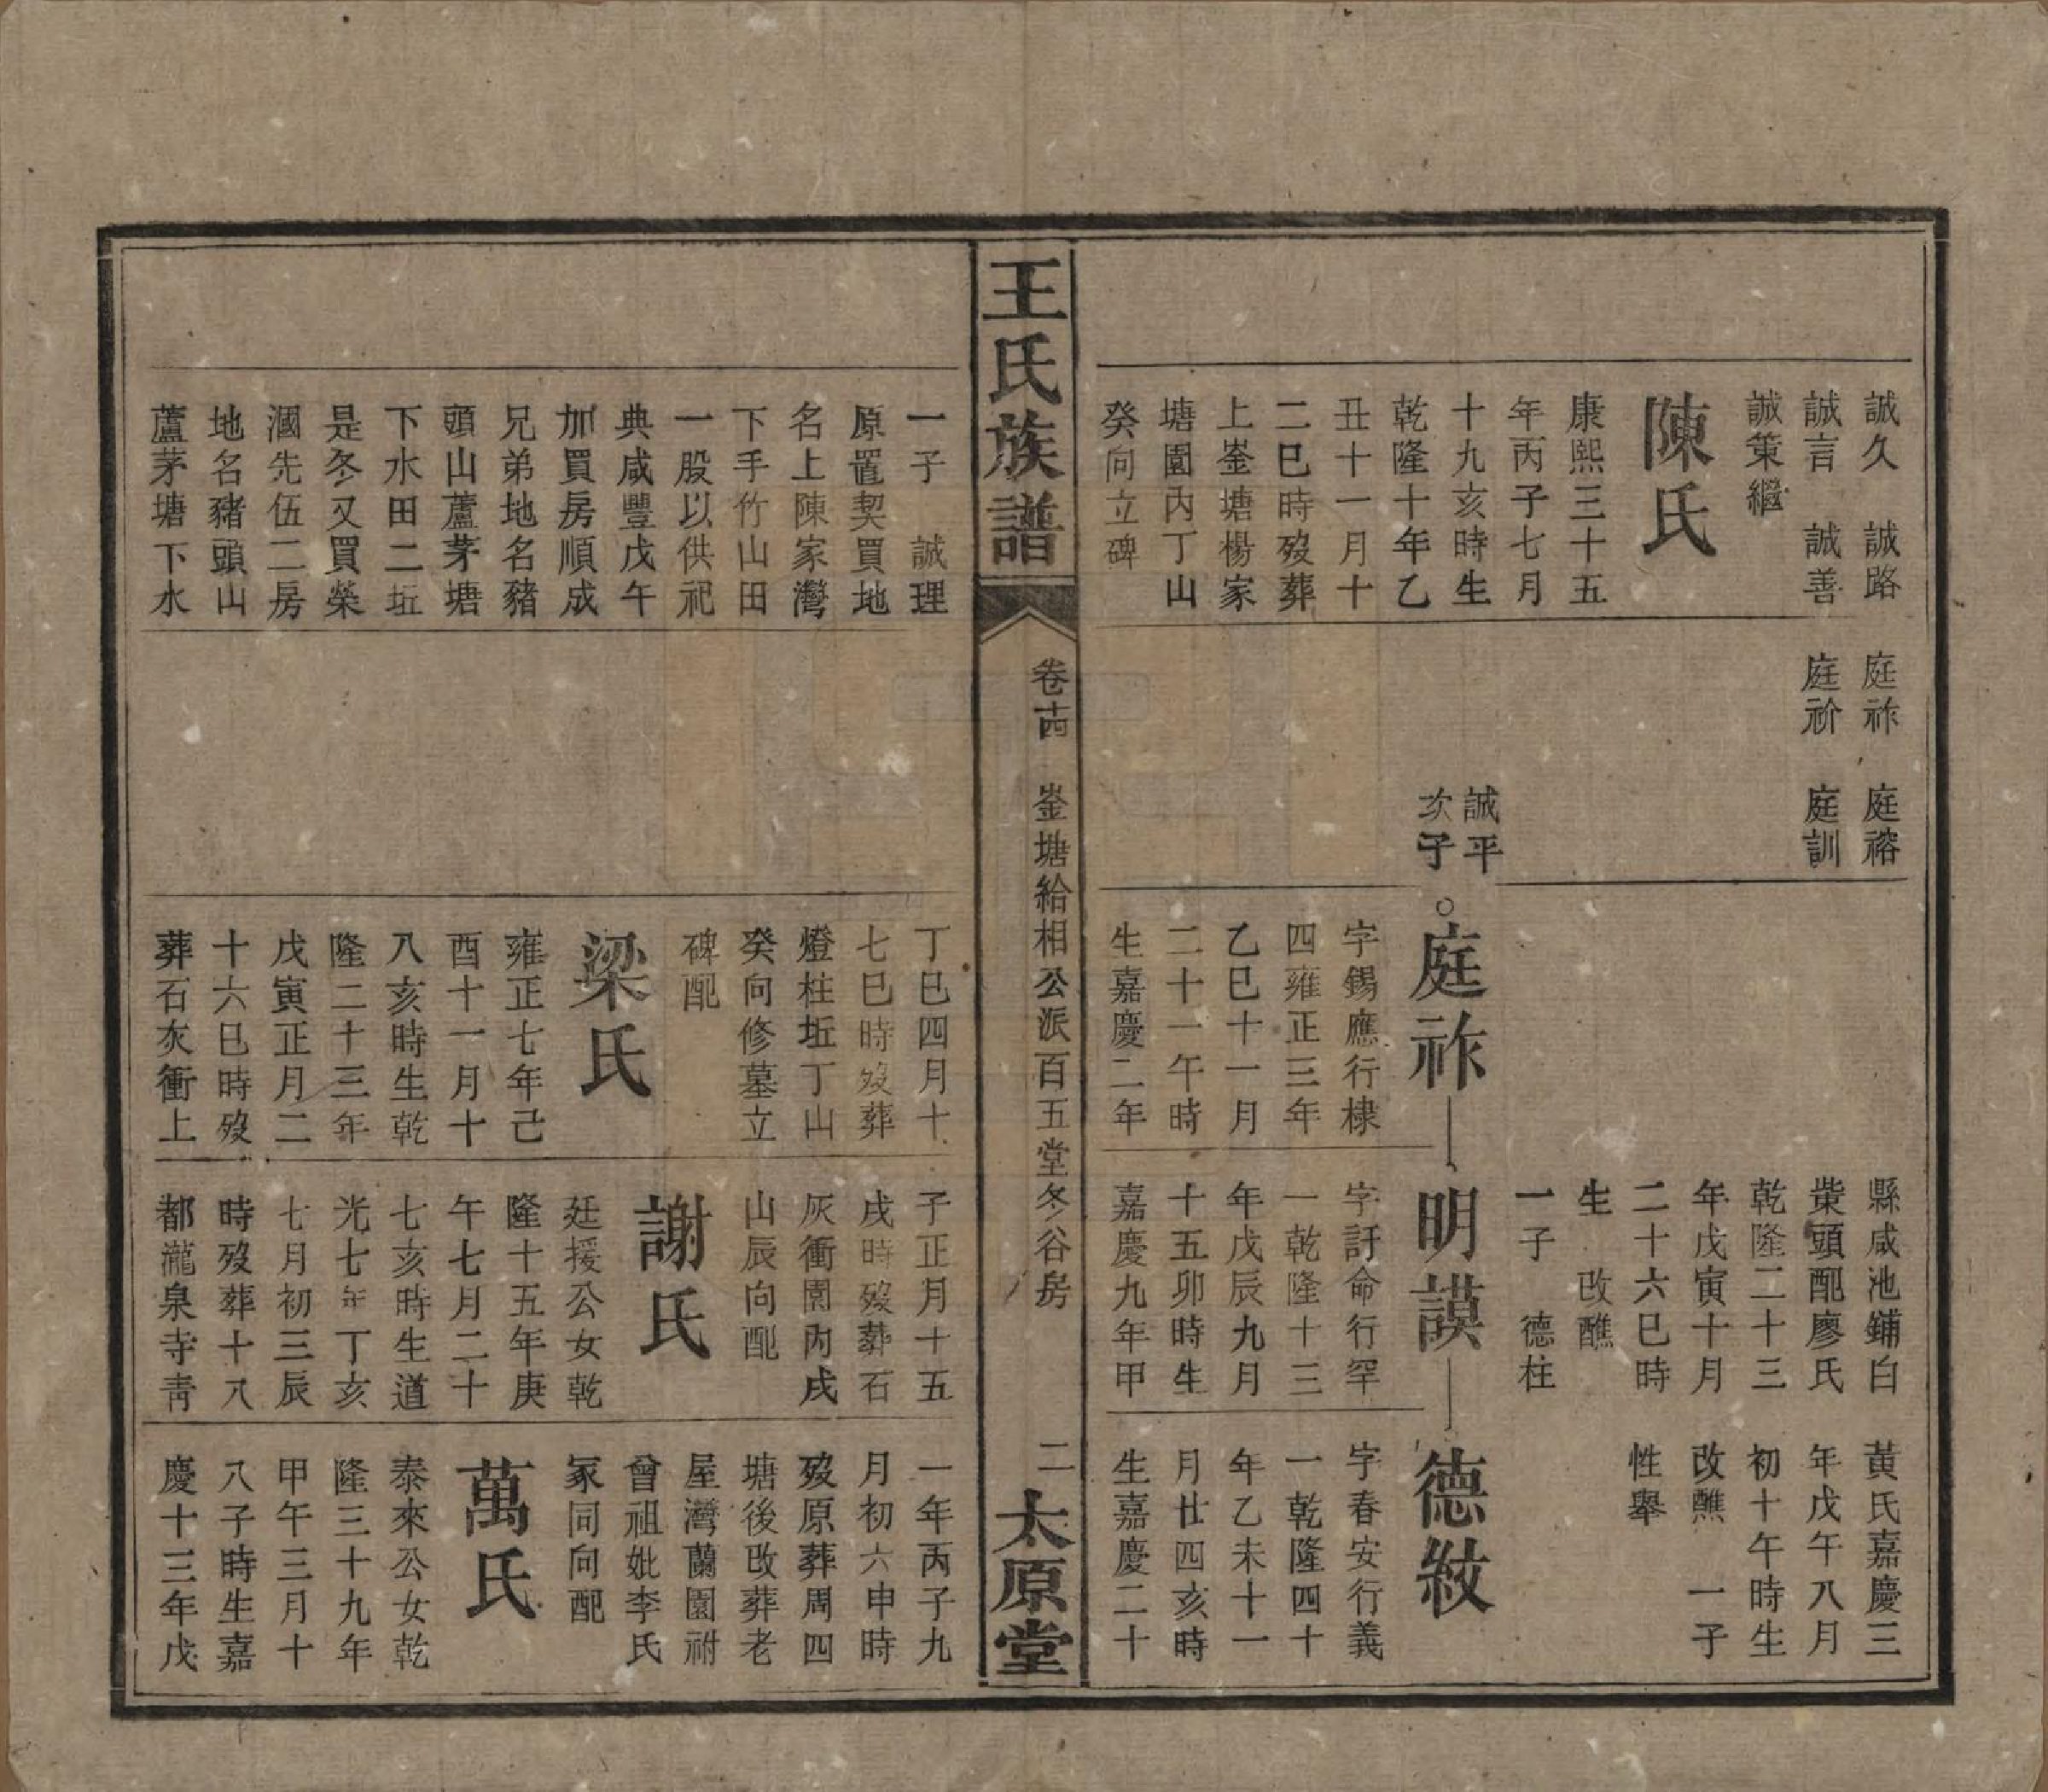 誠久　誠路
誠言　誠善
誠策繼
陳氏
康熙三十五
年丙子七月
十九亥時生
乾隆十年乙
丑十一月十
二巳時歿葬
上崟塘楊家
塘園內丁山
癸向立碑
庭祚　庭褣
庭祄　庭訓
誠平
次子
○庭祚
字錫應行棣
四雍正三年
乙巳十一月
二十一午時
生嘉慶二年
縣咸池鋪白
柴頭配廖氏
乾隆二十三
年戊寅十月
二十六巳時
生　改醮
一子　德柱
明謨
字訏命行罕
一乾隆十三
年戊辰九月
十五卯時生
嘉慶九年甲
黃氏嘉慶三
年戊午八月
初十午時生
改醮　一子
性舉
德紋
字春安行義
一乾隆四十
年乙未十一
月廿四亥時
生嘉慶二十
王氏族譜
卷十四　崟塘給相公派百五堂冬谷房
二
太原堂
一子　誠理
原置契買地
名上陳家灣
下手竹山田
一股以供祀
典咸豐戊午
加買房順成
兄弟地名豬
頭山蘆茅塘
下水田二坵
是冬又買榮
漍先伍二房
地名豬頭山
蘆茅塘下水
丁巳四月十
七巳時歿葬
燈柱坵丁山
癸向修墓立
碑配
梁氏
雍正七年己
酉十一月十
八亥時生乾
隆二十三年
戊寅正月二
十六巳時歿
葬石灰衝上
子正月十五
戌時歿葬石
灰衝園內戌
山辰向配
謝氏
廷援公女乾
隆十五年庚
午七月二十
七亥時生道
光七年丁亥
七月初三辰
時歿葬十八
都瀧泉寺靑
一年丙子九
月初六申時
歿原葬周四
塘後改葬老
屋灣蘭園祔
曾祖妣李氏
冢同向配
萬氏
泰來公女乾
隆三十九年
甲午三月十
八子時生嘉
慶十三年戊